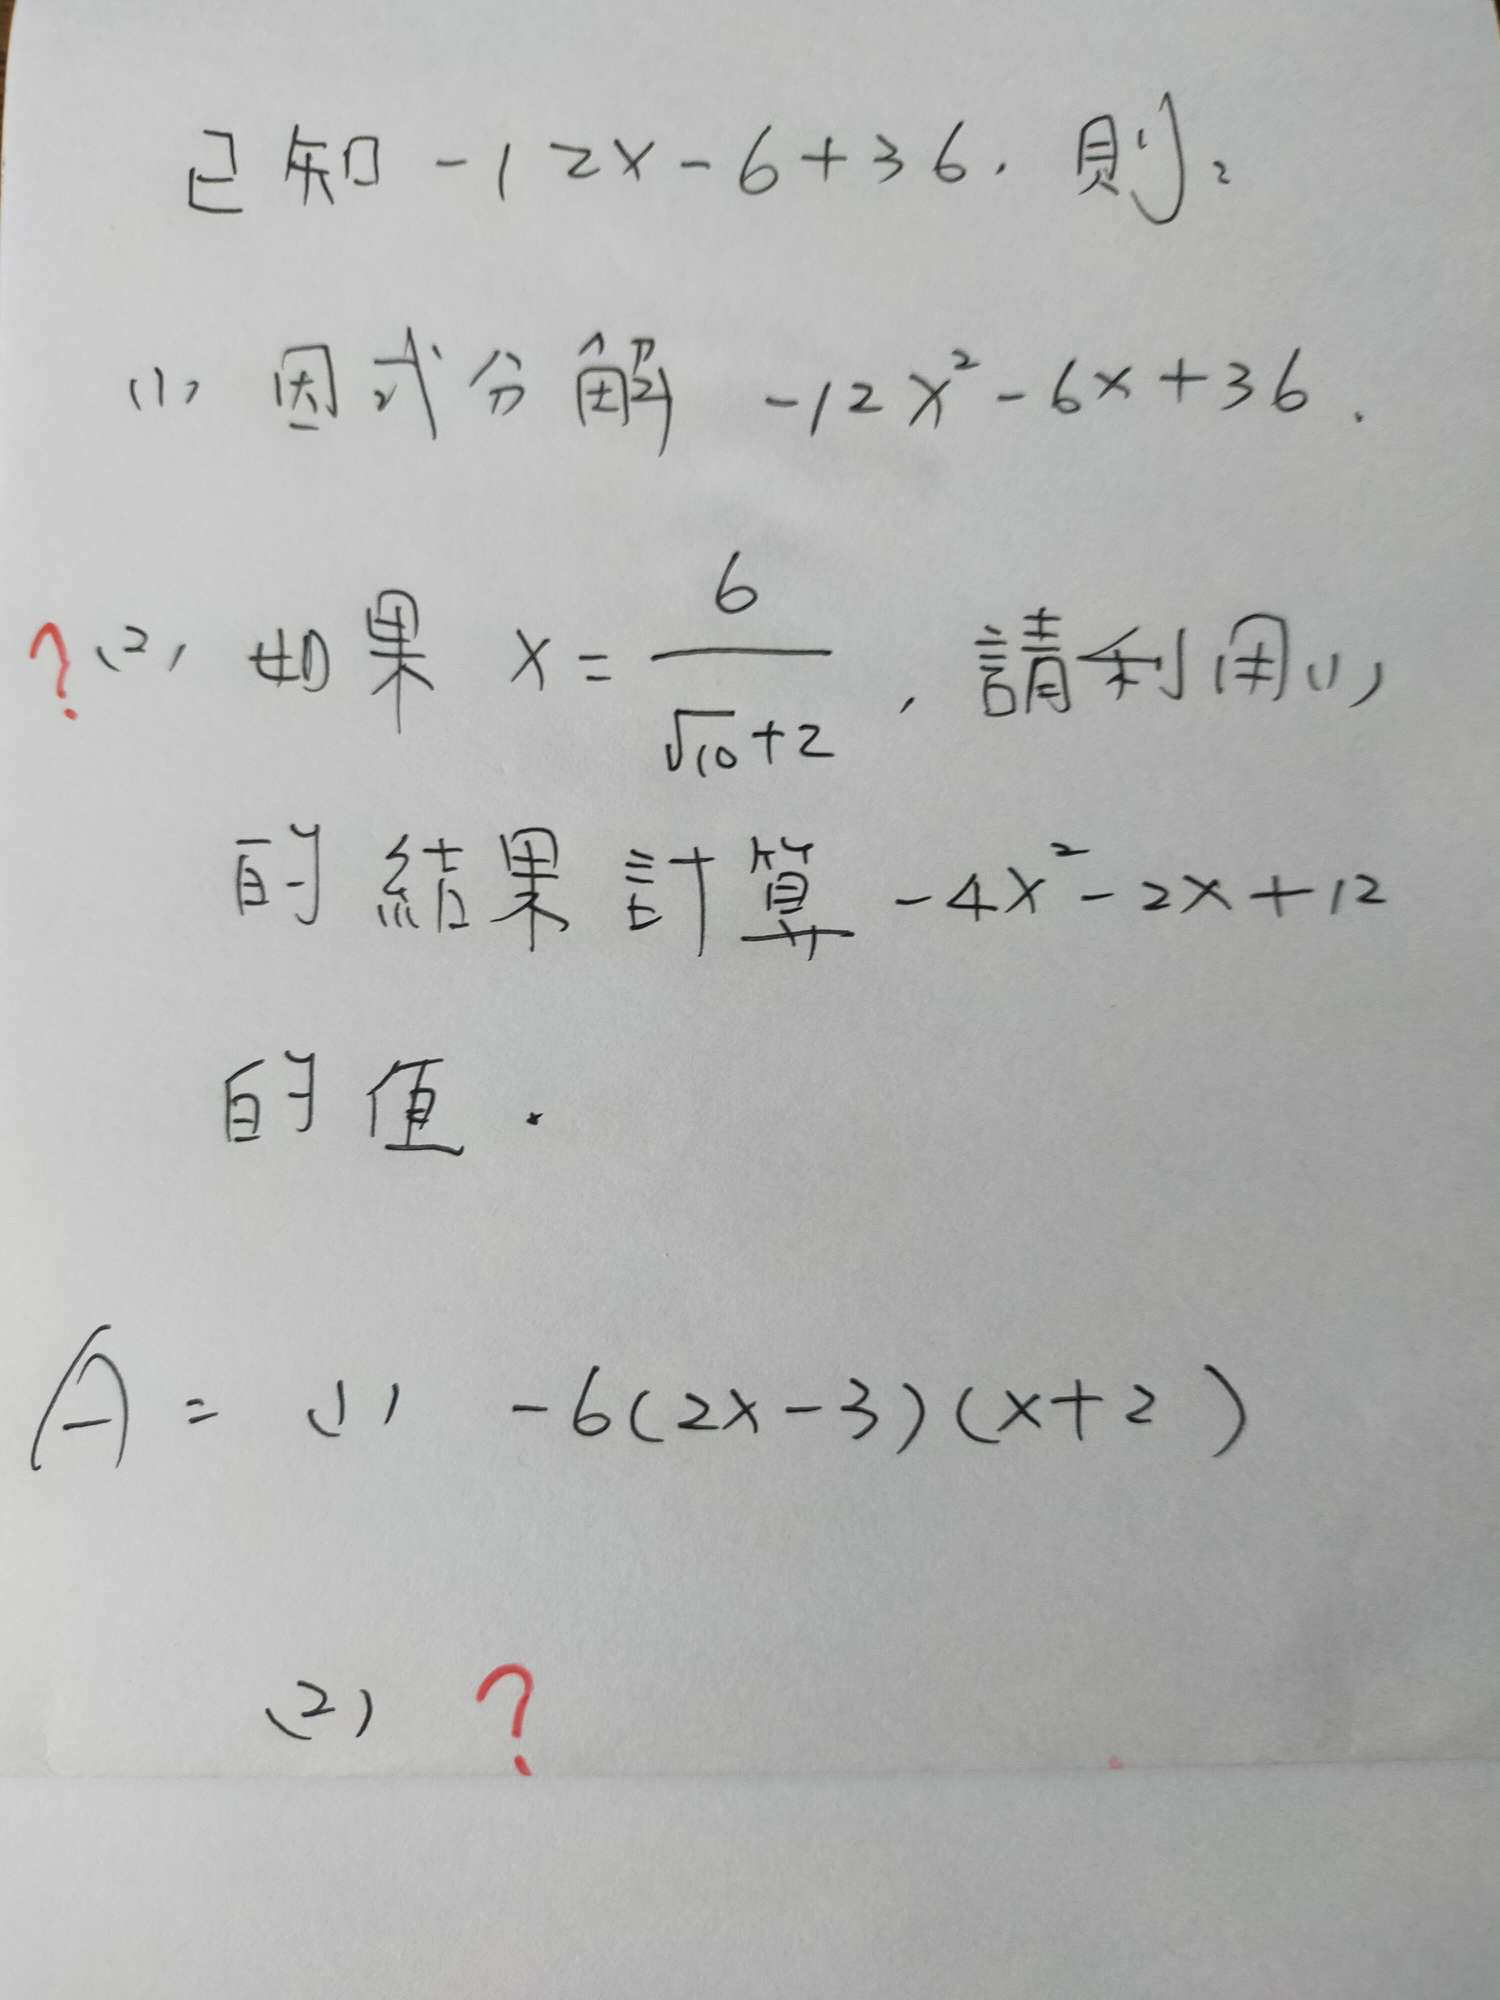 已知 -12x-6+36. 則:
(1) 因式分解 -12x²-6x+36.
? (2) 如果 x=6/(√10+2), 請利用(1)
的結果計算 -4x²-2x+12
的值.
A= (1) -6(2x-3)(x+2)
(2) ?